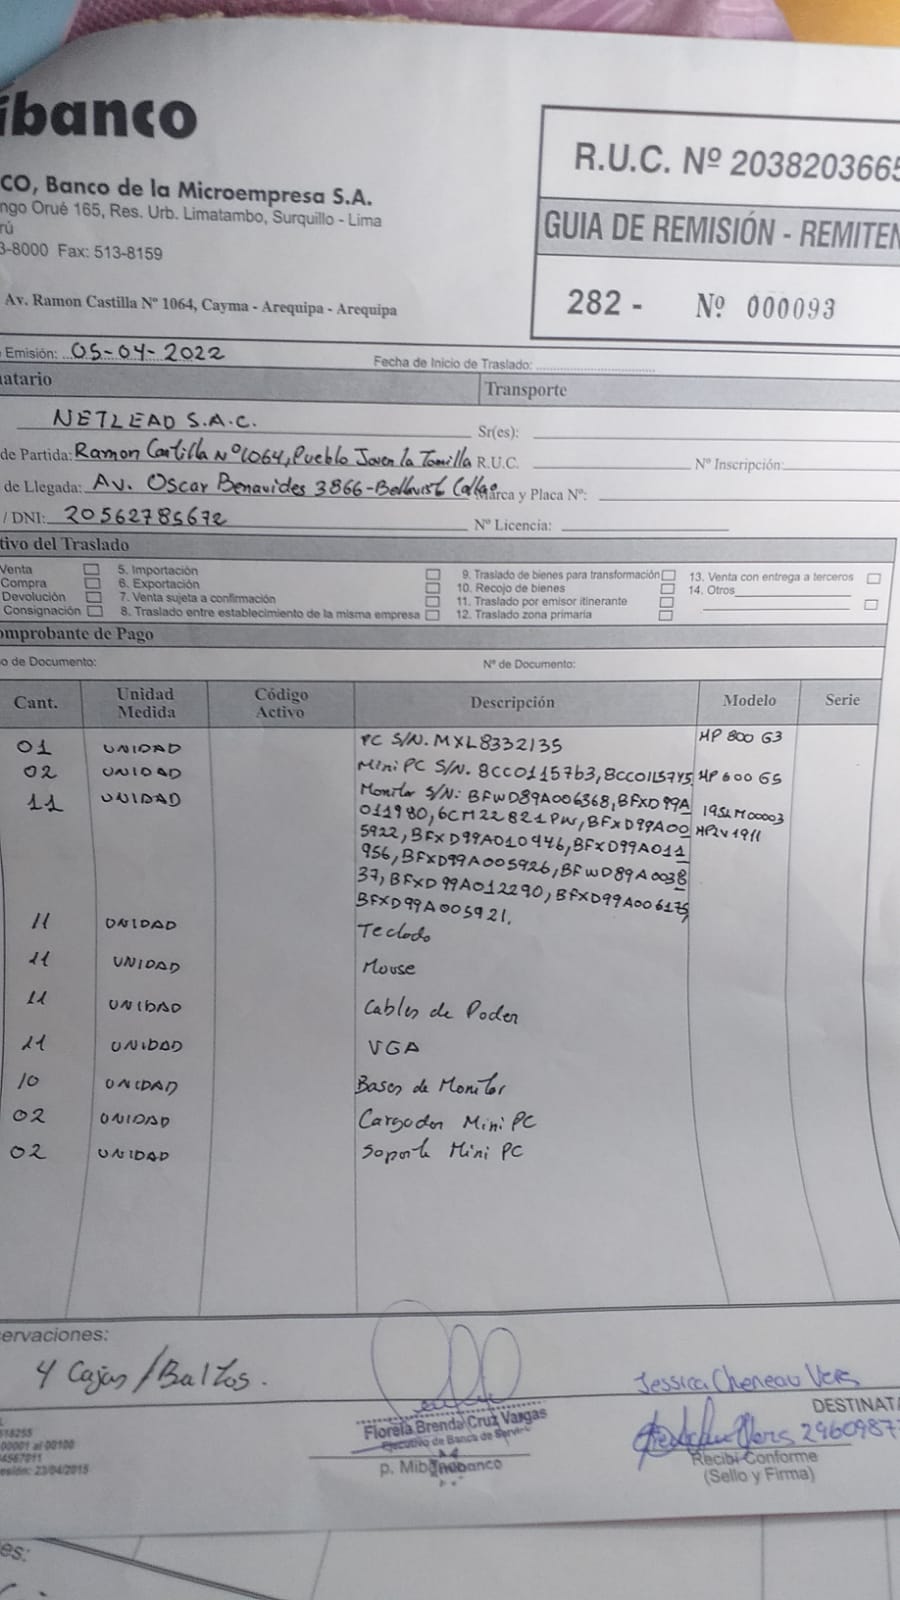 ibanco
CO, Banco de la Microempresa S.A.
ngo Orué 165, Res. Urb. Limatambo, Surquillo - Lima
rú
3-8000 Fax: 513-8159
Av. Ramon Castilla Nº 1064, Cayma - Arequipa - Arequipa
R.U.C. Nº 2038203665
GUIA DE REMISIÓN - REMITEN
282 - Nº 000093
Emisión: 05-04-2022 Fecha de Inicio de Traslado:
natario Transporte
NETLEAD S.A.C. Sr(es):
de Partida: Ramon Castilla Nº1064, Pueblo Joven la Tomilla R.U.C. Nº Inscripción:
de Llegada: Av. Oscar Benavides 3866-Bellavist Callao Marca y Placa Nº:
/ DNI: 20562785672 Nº Licencia:
tivo del Traslado
Venta 5. Importación 9. Traslado de bienes para transformación 13. Venta con entrega a terceros
Compra 6. Exportación 10. Recojo de bienes 14. Otros
Devolución 7. Venta sujeta a confirmación 11. Traslado por emisor itinerante
Consignación 8. Traslado entre establecimiento de la misma empresa 12. Traslado zona primaria
omprobante de Pago
o de Documento: Nº de Documento:
Cant. Unidad Medida Código Activo Descripción Modelo Serie
01 UNIDAD PC S/N. MXL8332135 HP 800 G3
02 UNIDAD Mini PC S/N. 8CC01157b3, 8CC0115745, HP 600 G5
11 UNIDAD Monitor S/N: BFWD89A006368, BFXD99A 19SLM00003
011980, 6CM22821PW, BFXD99A00 HP2V1911
5922, BFXD99A010946, BFXD99A011
956, BFXD99A005926, BFWD89A0038
37, BFXD99A012290, BFXD99A006175,
BFXD99A005921.
11 UNIDAD Teclado
11 UNIDAD Mouse
11 UNIDAD Cables de Poder
11 UNIDAD VGA
10 UNIDAD Bases de Monitor
02 UNIDAD Cargador Mini PC
02 UNIDAD Soporte Mini PC
ervaciones:
4 Cajas/Baltos.
Jessica Cheneau Vera
DESTINATA
2960987
Fiorela Brenda Cruz Vargas
Ejecutivo de Banca de Servic
p. Mibanco
Recibí Conforme
(Sello y Firma)
618255
00001 al 00100
4567011
esión: 23/04/2015
es: